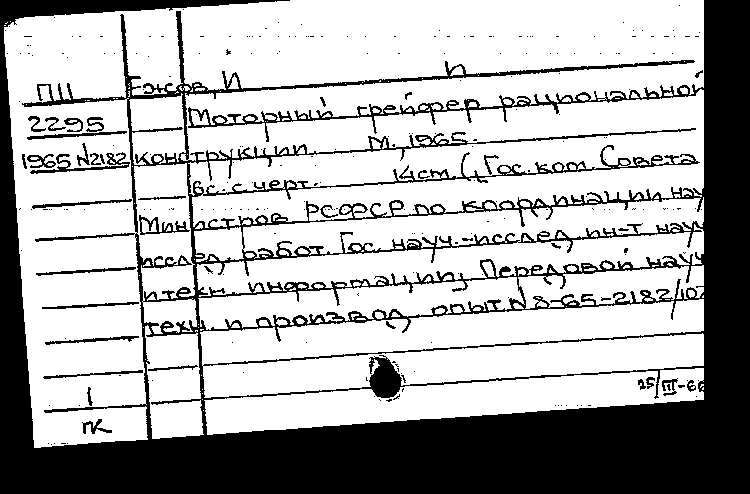 ПII Ежов, И И
2295 Моторный грейфер рациональной
1965 №2182 конструкции. М., 1965.
6с. с черт. 14см. (Гос. ком. Совета
Министров РСФСР по координации нау
исслед. работ. Гос. науч.-исслед. ин-т науч
и техн. информации, Передовой науч
техн. и производ. опыт. №8-65-2182/10
1
пк
25/III-66